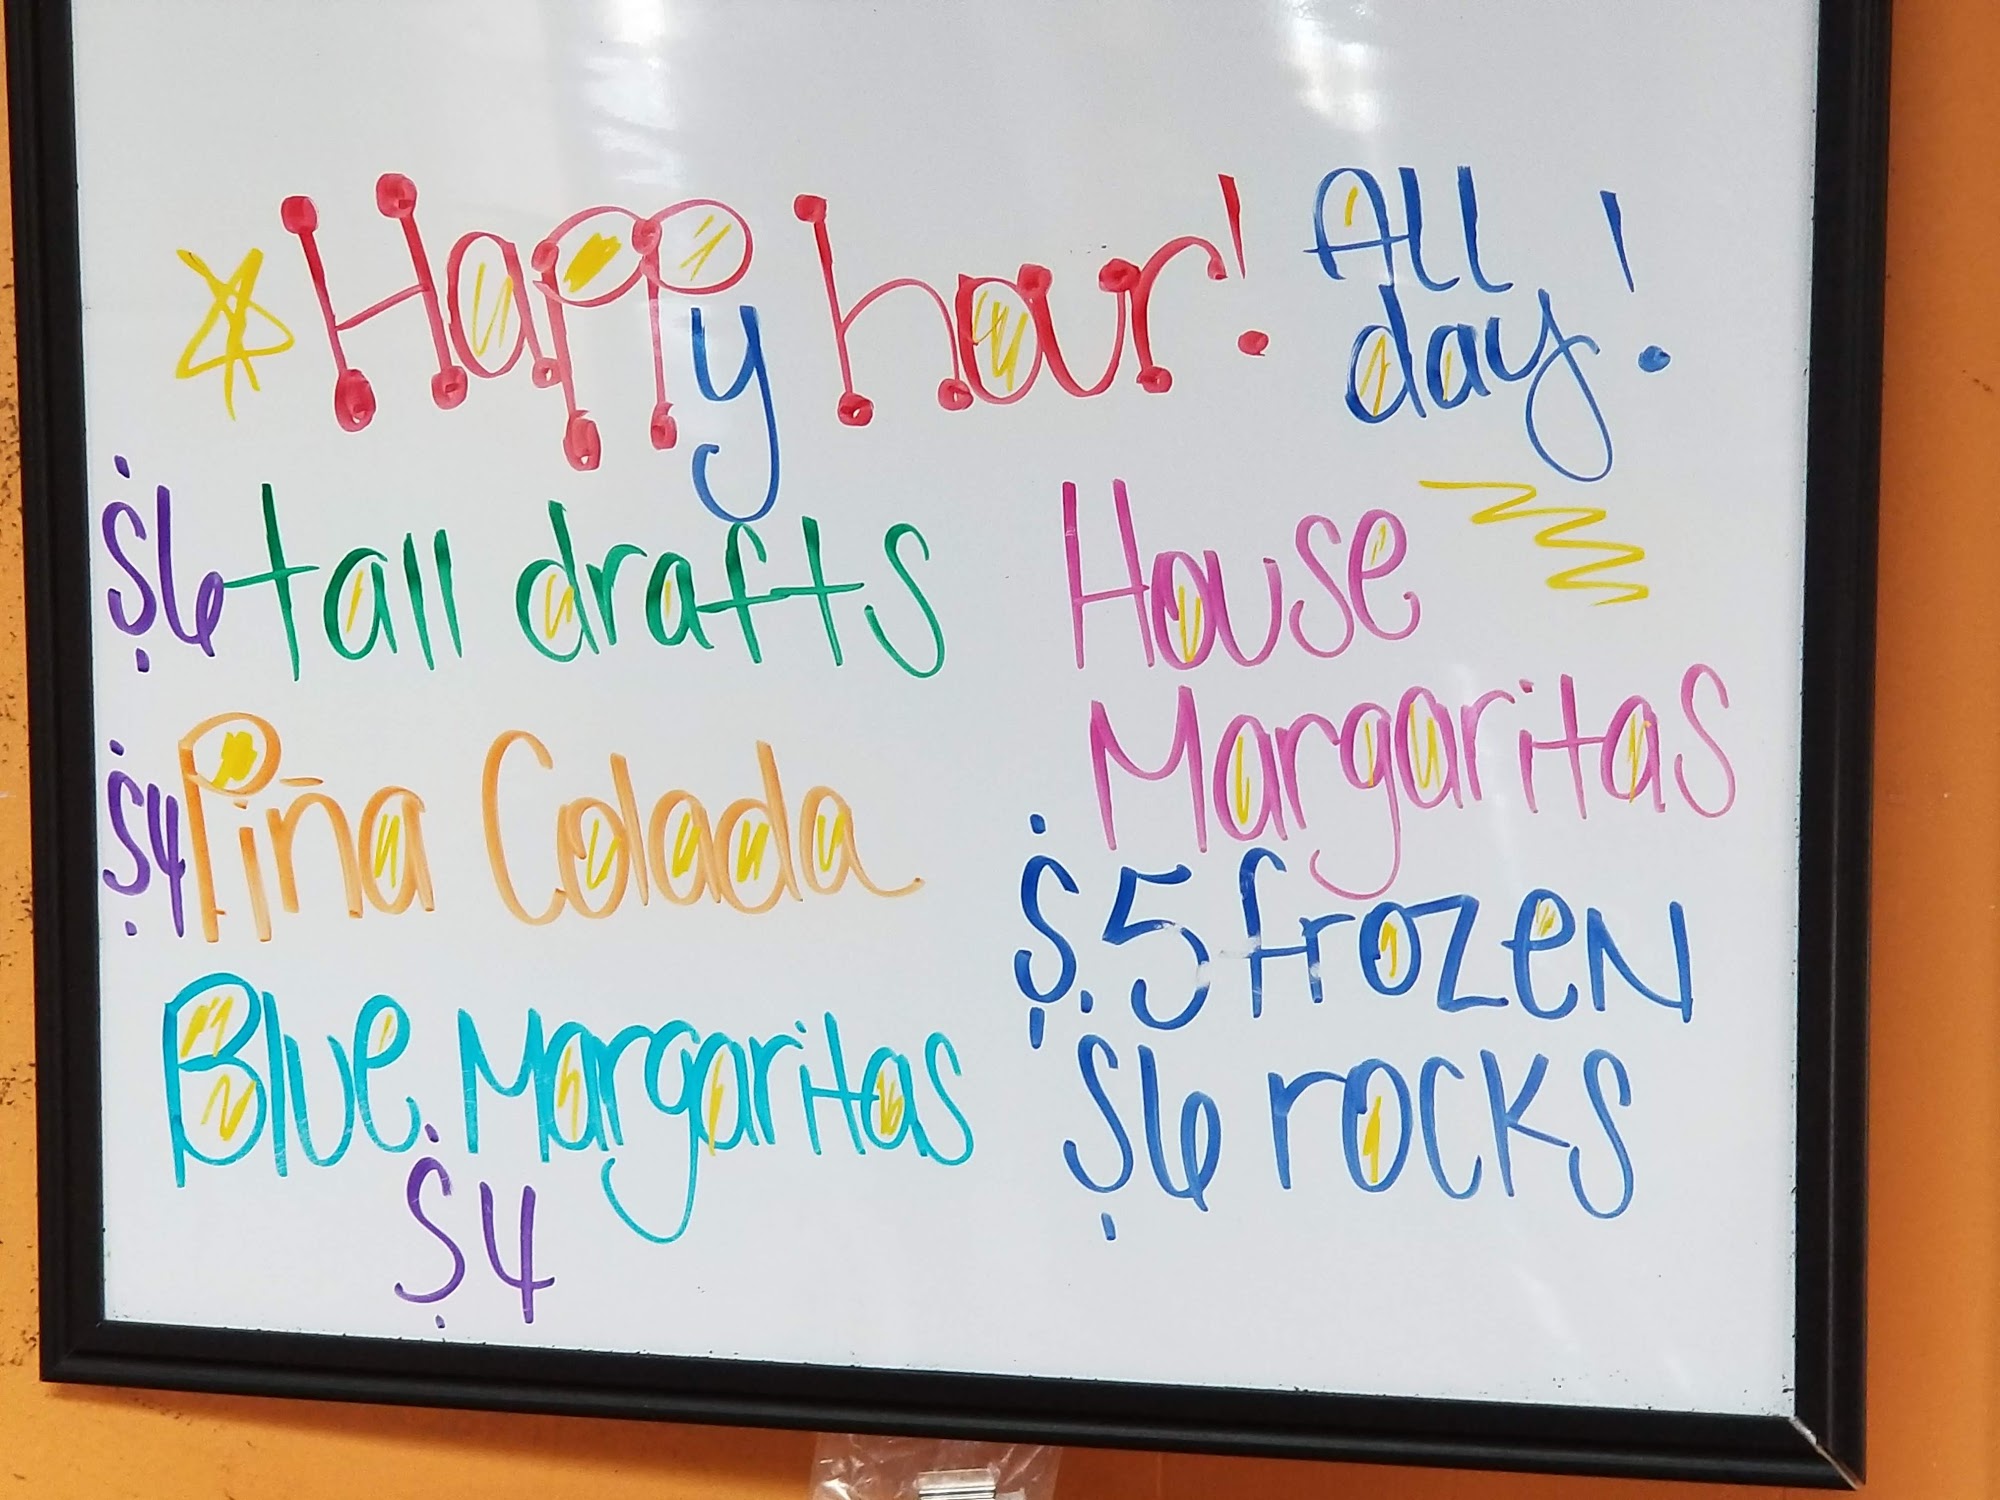 Happy hour! All day!
$6 tall drafts
$4 Piña Colada
Blue Margaritas
$4
House
Margaritas
$5 frozen
$6 rocks